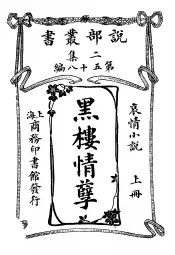 說部叢書
二集
第五十八編
哀情小說
上冊
黑樓情孽
上海
商務印書館發行